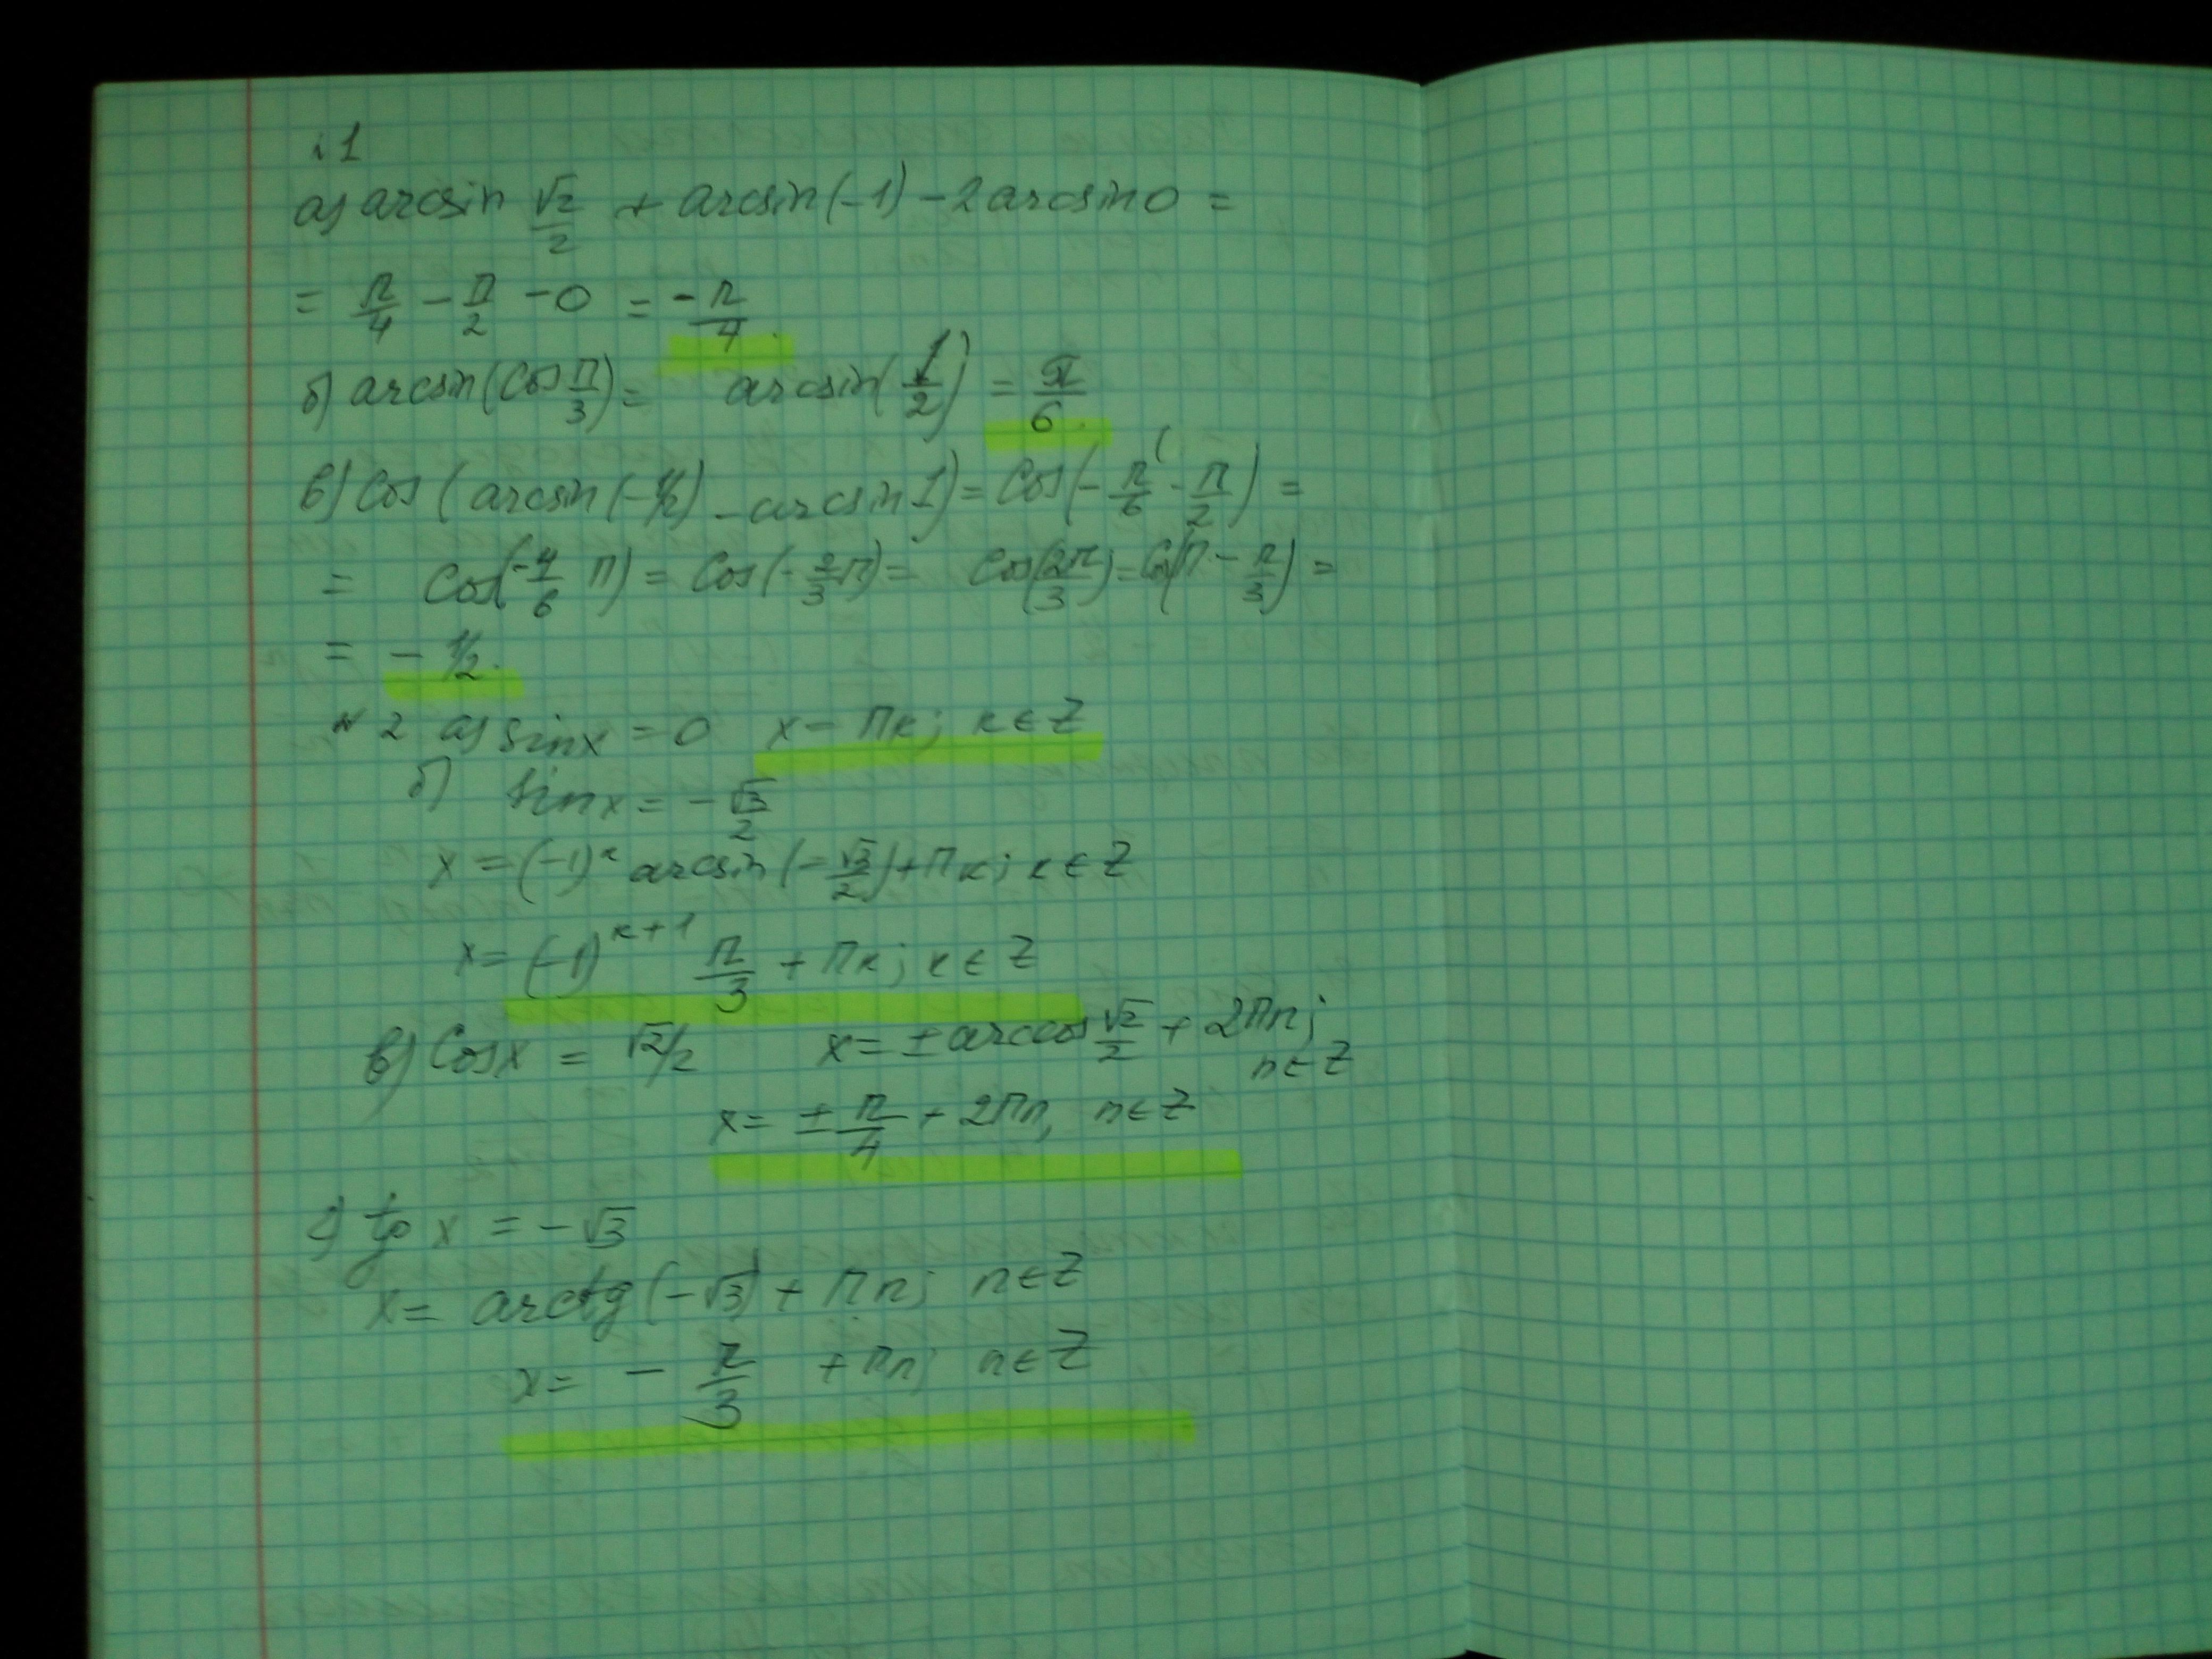 №1
а) arcsin √2/2 + arcsin(-1) - 2arcsin0 =
= π/4 - π/2 - 0 = -π/4.
б) arcsin(cos π/3) = arcsin(1/2) = π/6.
в) Cos(arcsin(-1/2) - arcsin1) = Cos(-π/6 - π/2) =
= Cos(-4/6 π) = Cos(-2/3 π) = Cos(2π/3) = Cos(π - π/3) =
= -1/2.
№2 а) sinx = 0 x = πк; к∈Z
б) sinx = -√3/2
x = (-1)ᵏ arcsin(-√3/2) + πк; к∈Z
x = (-1)ᵏ⁺¹ π/3 + πк; к∈Z
в) Cosx = √2/2 x = ±arccos √2/2 + 2πn; n∈Z
x = ±π/4 + 2πn, n∈Z
г) tg x = -√3
x = arctg(-√3) + πn; n∈Z
x = -π/3 + πn; n∈Z